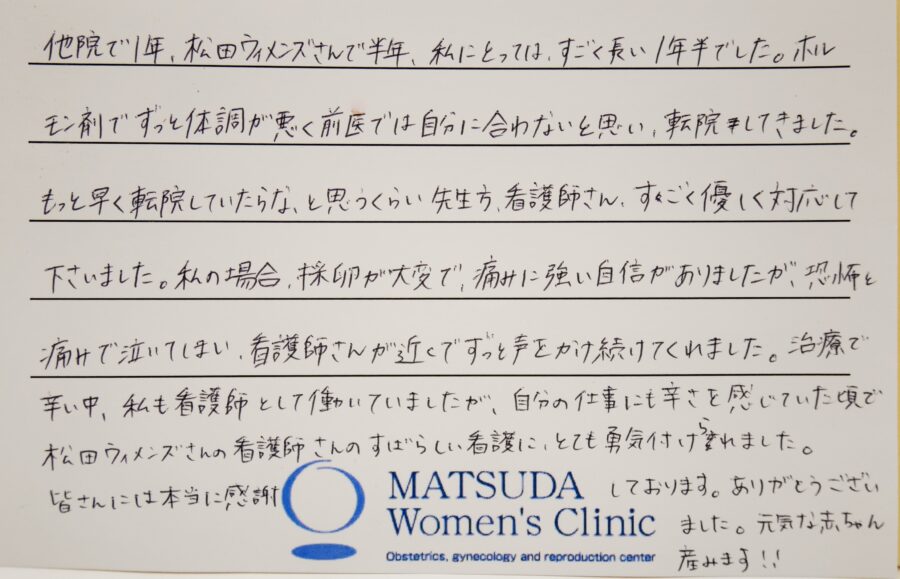 他院で1年、松田ウィメンズさんで半年、私にとっては、すごく長い1年半でした。ホル
モン剤でずっと体調が悪く前医では自分に合わないと思い、転院してきました。
もっと早く転院していたらな、と思うくらい先生方、看護師さん、すごく優しく対応して
下さいました。私の場合、採卵が大変で、痛みに強い自信がありましたが、恐怖と
痛みで泣いてしまい、看護師さんが近くでずっと声をかけ続けてくれました。治療で
辛い中、私も看護師として働いていましたが、自分の仕事にも辛さを感じていた頃で
松田ウィメンズさんの看護師さんのすばらしい看護に、とても勇気付けられました。
皆さんには本当に感謝しております。ありがとうござい
ました。元気な赤ちゃん
産みます!!
MATSUDA
Women's Clinic
Obstetrics, gynecology and reproduction center